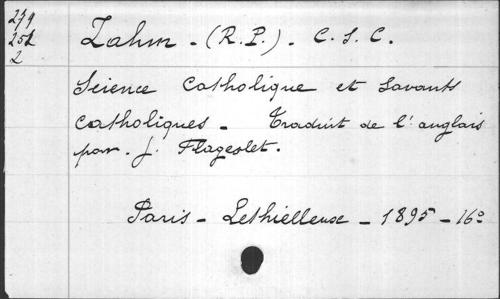 279
252
2
Zahm - (R.P.) - C.S.C.
Science Catholique et Savants
Catholiques - Traduit de l'anglais
par J. Flageolet.
Paris - Lethielleux - 1895 - 16º